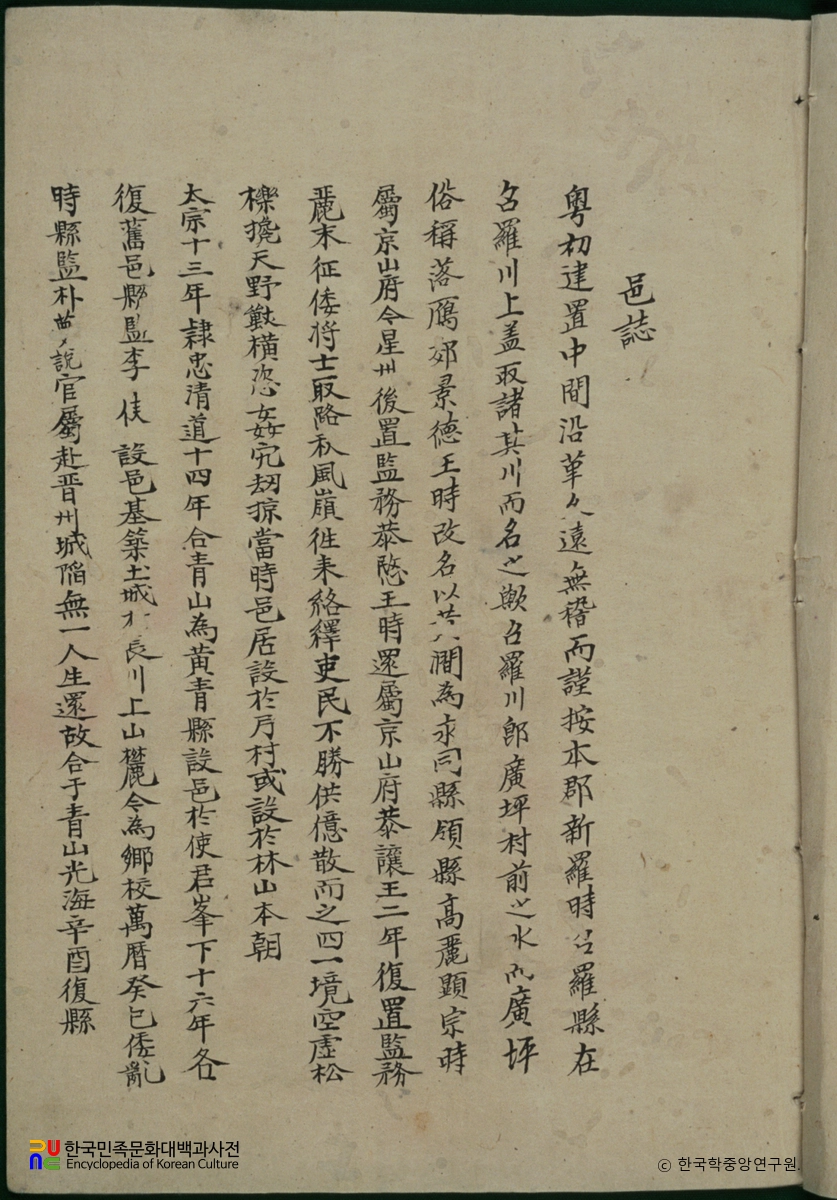 邑誌
粤初建置中間沿革久遠無稽而謹按本郡新羅時召羅縣在
召羅川上盖取諸其川而名之歟召羅川郎廣坪村前之水而廣坪
俗稱落鴈郊景德王時改名以其澗為永同縣領縣高麗顯宗時
屬京山府今星州後置監務恭愍王時還屬京山府恭讓王二年復置監務
麗末征倭將士取路秋風嶺徃来絡繹吏民不勝供億散而之四一境空虛松
櫟攙天野獸横恣姦宄刼掠當時邑居設於弓村或設於林山本朝
太宗十三年隷忠清道十四年合青山為黃青縣設邑於使君峯下十六年各
復舊邑縣監李伎設邑基築土城於長川上山麓今為鄉校萬曆癸巳倭亂
時縣監朴說官屬赴晋州城陷無一人生還故合于青山光海辛酉復縣
한국민족문화대백과사전
Encyclopedia of Korean Culture
© 한국학중앙연구원.